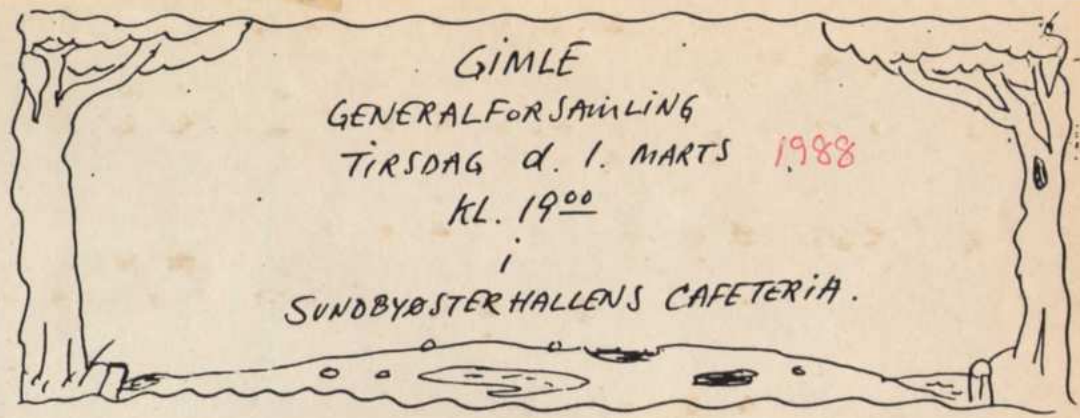 GIMLE
GENERALFORSAMLING
TIRSDAG d. 1. MARTS 1988
KL. 19⁰⁰
i
SUNDBYØSTERHALLENS CAFETERIA.